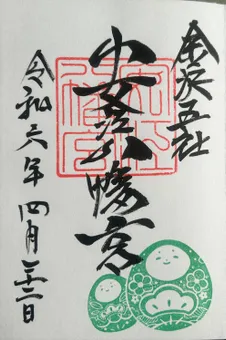 金沢五社
安江八幡宮
令和六年四月二十二日